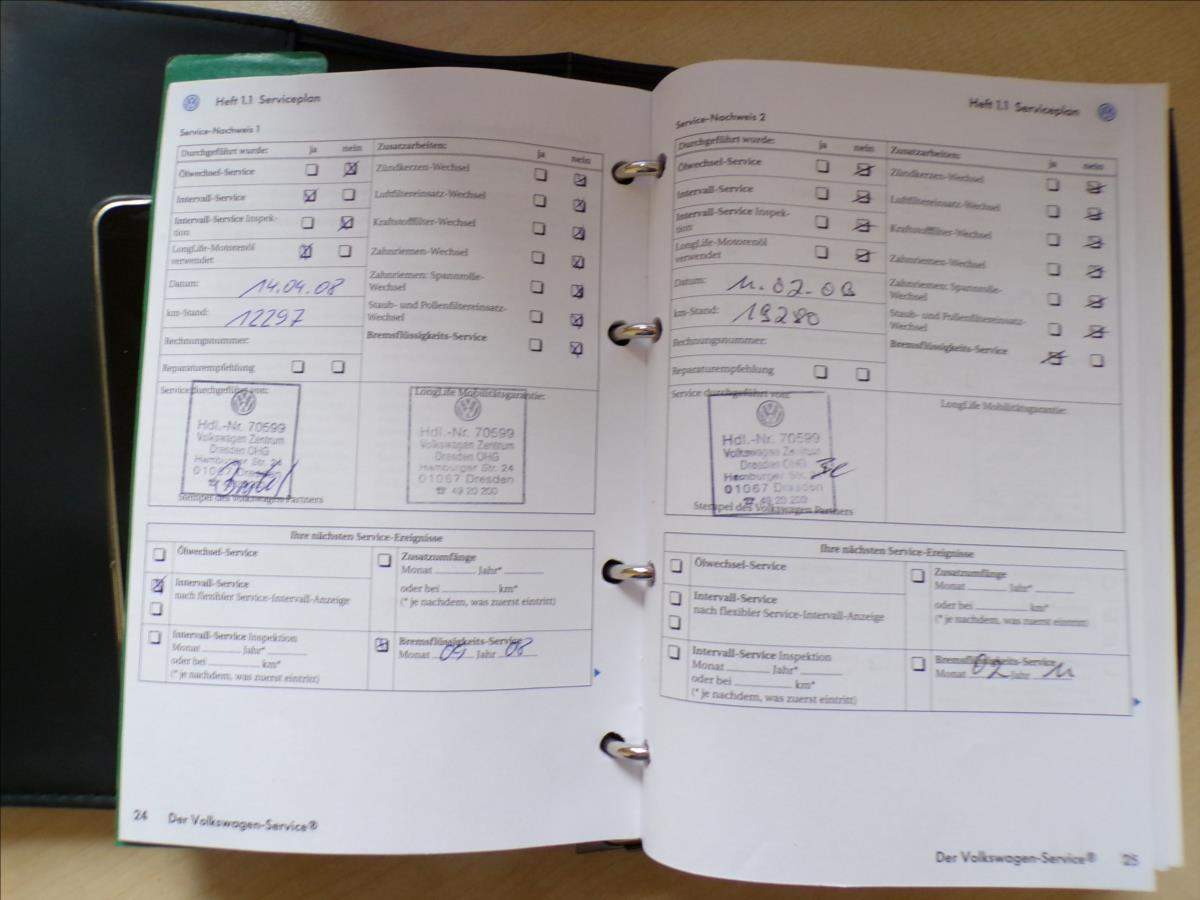 Heft 1.1 Serviceplan
Service-Nachweis 1
Durchgeführt wurde: ja nein
Ölwechsel-Service
Intervall-Service
Intervall-Service Inspek-
tion
LongLife-Motorenöl
verwendet
Datum: 14.04.08
km-Stand: 12297
Rechnungsnummer:
Reparaturempfehlung
Zusatzarbeiten: ja nein
Zündkerzen-Wechsel
Luftfiltereinsatz-Wechsel
Kraftstofffilter-Wechsel
Zahnriemen-Wechsel
Zahnriemen: Spannrolle-
Wechsel
Staub- und Pollenfiltereinsatz-
Wechsel
Bremsflüssigkeits-Service
Service durchgeführt von:
Hdl.-Nr. 70599
Volkswagen Zentrum
Dresden OHG
Hamburger Str. 24
Stempel des Volkswagen Partners
LongLife Mobilitätsgarantie:
Hdl.-Nr. 70599
Volkswagen Zentrum
Dresden OHG
Hamburger Str. 24
01067 Dresden
☎ 49 20 200
Ihre nächsten Service-Ereignisse
Ölwechsel-Service
Intervall-Service
nach flexibler Service-Intervall-Anzeige
Intervall-Service Inspektion
Monat Jahr*
oder bei km*
(* je nachdem, was zuerst eintritt)
Zusatzumfänge
Monat Jahr*
oder bei km*
(* je nachdem, was zuerst eintritt)
Bremsflüssigkeits-Service
Monat 09 Jahr 08
24 Der Volkswagen-Service®
Heft 1.1 Serviceplan
Service-Nachweis 2
Durchgeführt wurde: ja nein
Ölwechsel-Service
Intervall-Service
Intervall-Service Inspek-
tion
LongLife-Motorenöl
verwendet
Datum: 11.02.09
km-Stand: 19280
Rechnungsnummer:
Reparaturempfehlung
Zusatzarbeiten: ja nein
Zündkerzen-Wechsel
Luftfiltereinsatz-Wechsel
Kraftstofffilter-Wechsel
Zahnriemen-Wechsel
Zahnriemen: Spannrolle-
Wechsel
Staub- und Pollenfiltereinsatz-
Wechsel
Bremsflüssigkeits-Service
Service durchgeführt von:
Hdl.-Nr. 70599
Volkswagen Zentrum
Dresden OHG
Hamburger Str.
01067 Dresden
☎ 49 20 200
Stempel des Volkswagen Partners
LongLife Mobilitätsgarantie:
Ihre nächsten Service-Ereignisse
Ölwechsel-Service
Intervall-Service
nach flexibler Service-Intervall-Anzeige
Intervall-Service Inspektion
Monat Jahr*
oder bei km*
(* je nachdem, was zuerst eintritt)
Zusatzumfänge
Monat Jahr*
oder bei km*
(* je nachdem, was zuerst eintritt)
Bremsflüssigkeits-Service
Monat 02 Jahr 11
Der Volkswagen-Service® 25